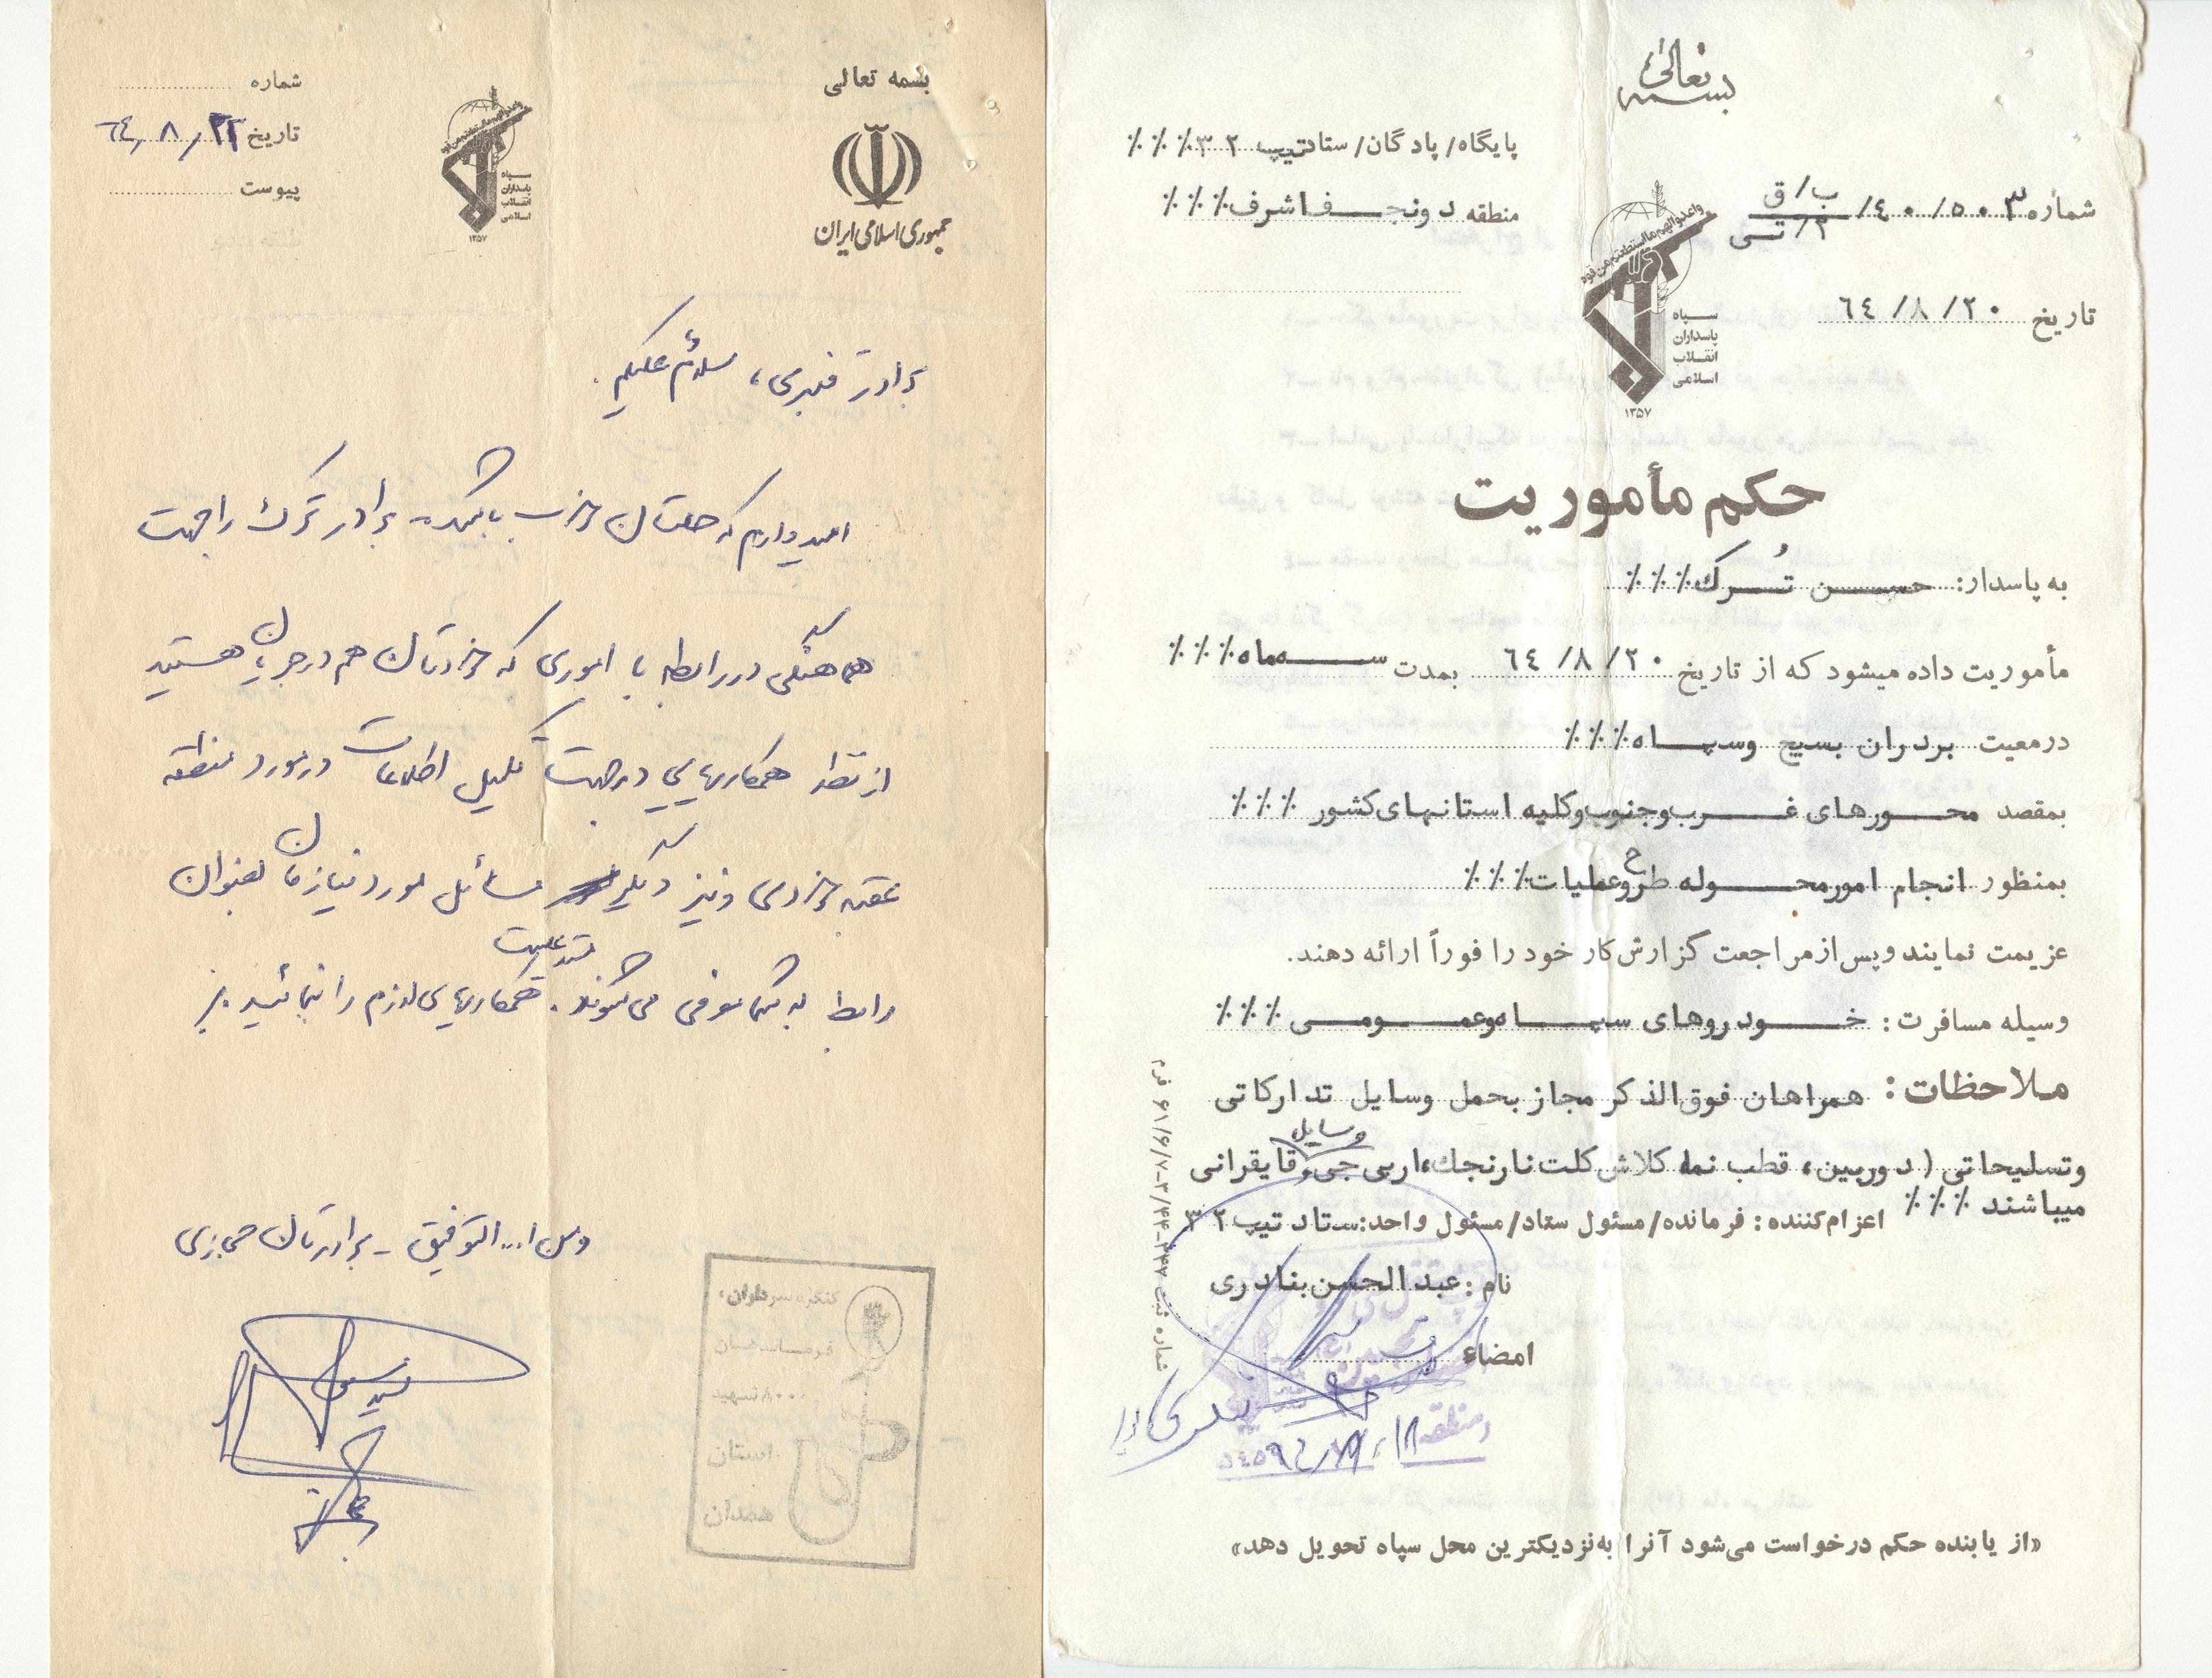 بسمه تعالی
پایگاه/پادگان/ستاد تیپ ۳۲٪٪٪
منطقه دو نجف اشرف٪٪٪
شماره ۴۰/۵۰۳/ ب/ق
۲/تی
تاریخ ۶۴/۸/۲۰
واعدوا لهم ما استطعتم من قوه
سپاه
پاسداران
انقلاب
اسلامی
۱۳۵۷
حکم مأموریت
به پاسدار: حسن تُرك٪٪٪
مأموریت داده میشود که از تاریخ ۶۴/۸/۲۰ بمدت سه ماه٪٪٪
درمعیت بردران بسیج وسپاه٪٪٪
بمقصد محورهای غرب وجنوب وکلیه استانهای کشور ٪٪٪
بمنظور انجام امور محوله طرح وعملیات٪٪٪
عزیمت نمایند و پس از مراجعت گزارش کار خود را فوراً ارائه دهند.
وسیله مسافرت: خودروهای سپاه وعمومی ٪٪٪
ملاحظات: همراهان فوق الذکر مجاز بحمل وسایل تدارکاتی
وتسلیحاتی (دوربین، قطب نما کلاش کلت نارنجك، اربی جی، وسایل قایقرانی
میباشند ٪٪٪
اعزام کننده: فرمانده/مسئول ستاد/مسئول واحد: ستاد تیپ ۳۲
نام: عبدالحسن بنادری
امضاء
منطقه
«از یابنده حکم درخواست می‌شود آنرا به نزدیکترین محل سپاه تحویل دهد»
بسمه تعالی
جمهوری اسلامی ایران
سپاه
پاسداران
انقلاب
اسلامی
۱۳۵۷
شماره
تاریخ ۶۴/۸/۲۲
پیوست
برادر قنبری، سلام علیکم.
امیدوارم که حالتان خوب باشد، برادر ترك را جهت
هماهنگی در رابطه با اموری که خودتان هم در جریان هستید
از نظر همکاریهایی در جهت تکمیل اطلاعات در مورد منطقه
عقبه خودی و نیز دیگر مسائل مورد نیازمان بعنوان
رابط به شما معرفی می‌شوند. همکاریهای لازم را بنمائید.
ومن ا... التوفیق - برادرتان حجازی
کنگره سرداران،
فرماندهان
۸۰۰۰ شهید
استان
همدان